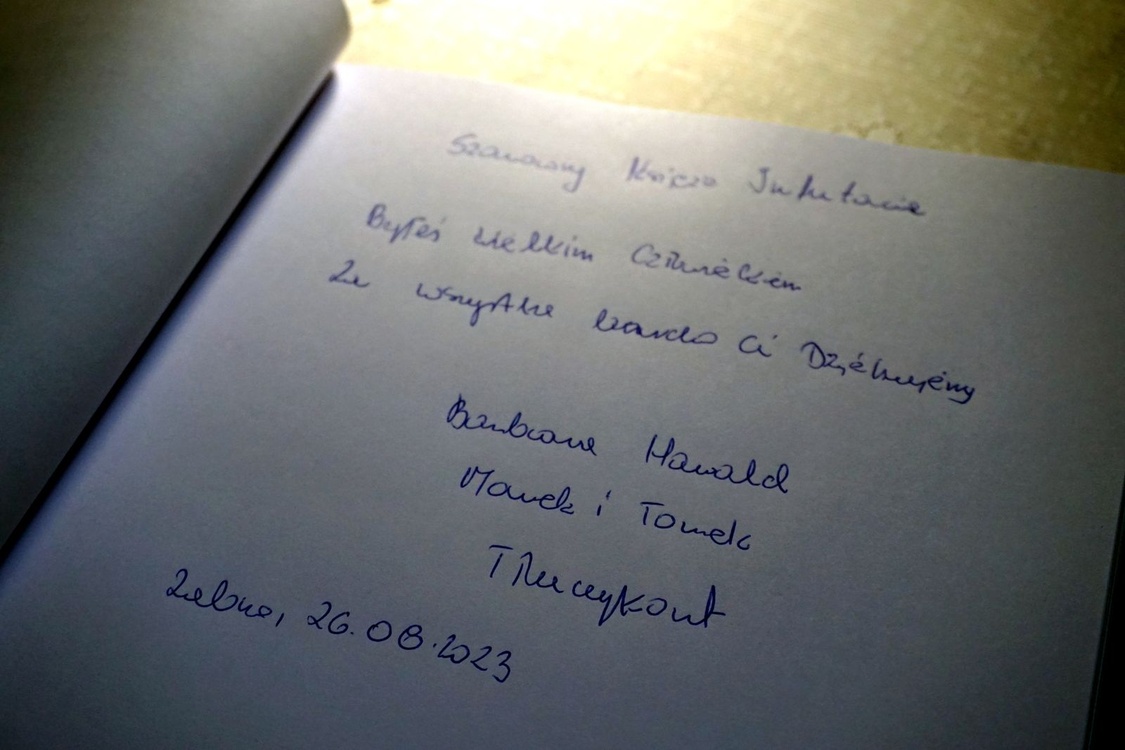 Szanowny Księże Infułacie
Byłeś wielkim człowiekiem
Za wszystko bardzo Ci Dziękujemy
Barbara Harald
Marek i Tomek
26.08.2023